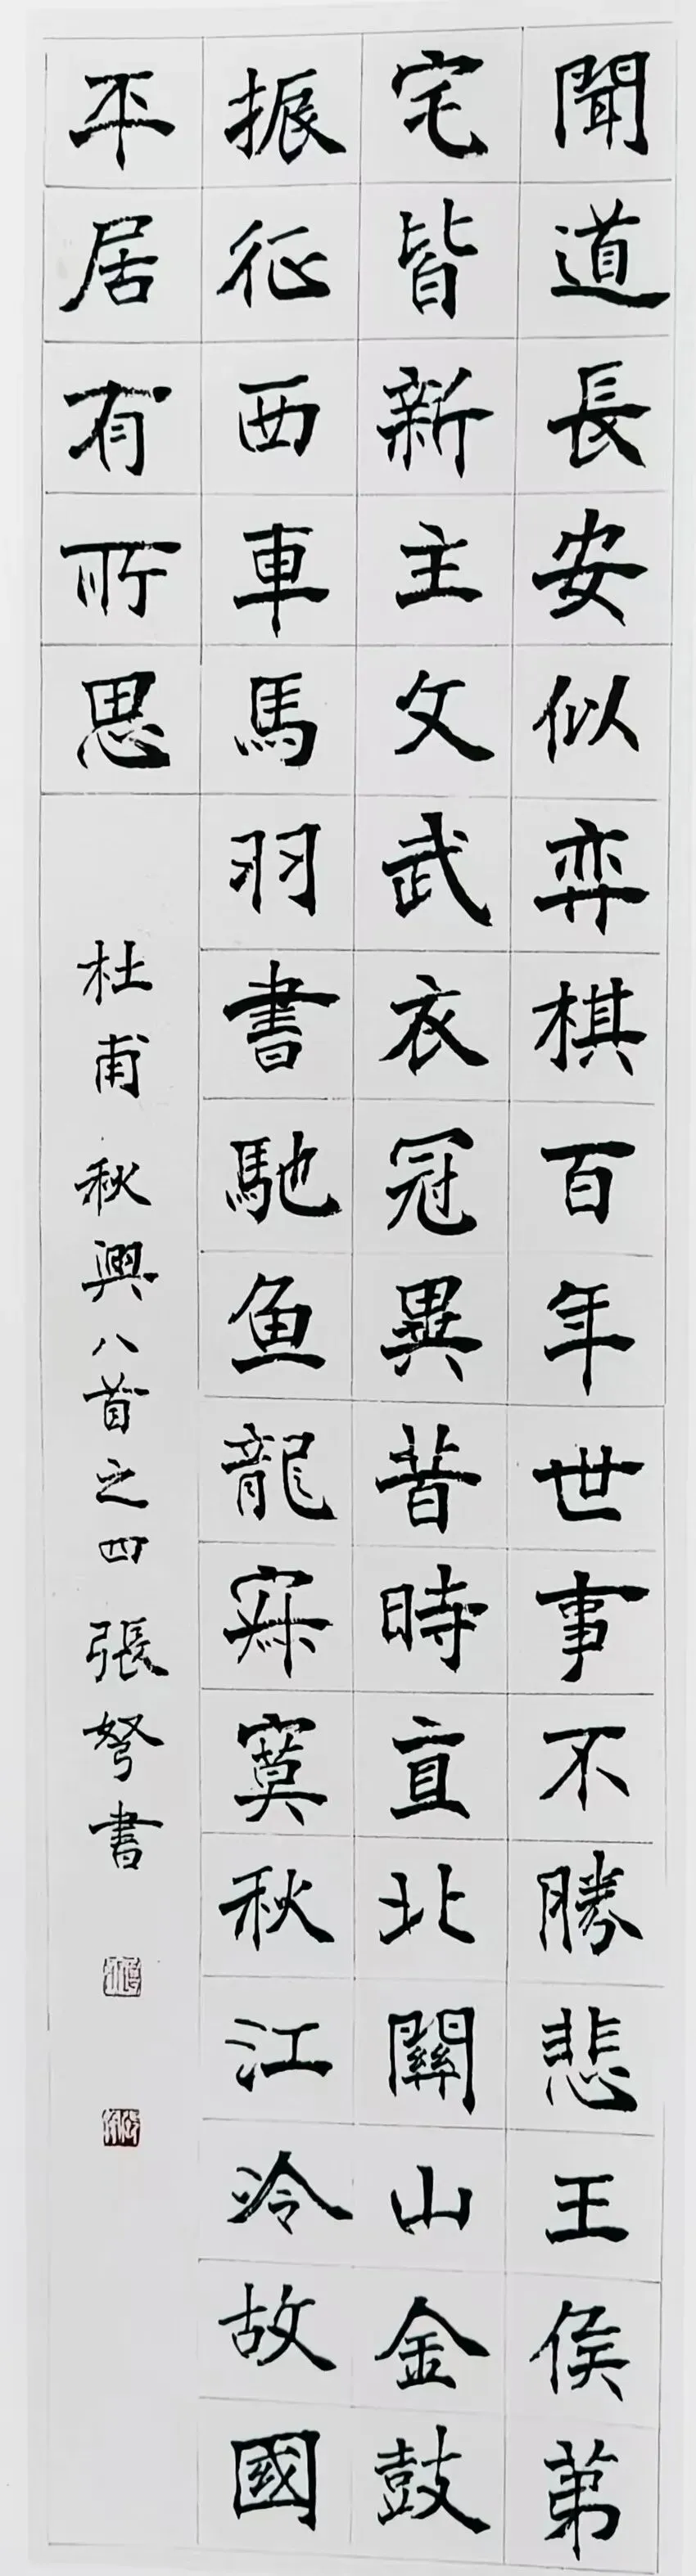 聞道長安似弈棋百年世事不勝悲王侯第
宅皆新主文武衣冠異昔時直北關山金鼓
振征西車馬羽書馳魚龍寂寞秋江冷故國
平居有所思
杜甫 秋興八首之四 張弩書